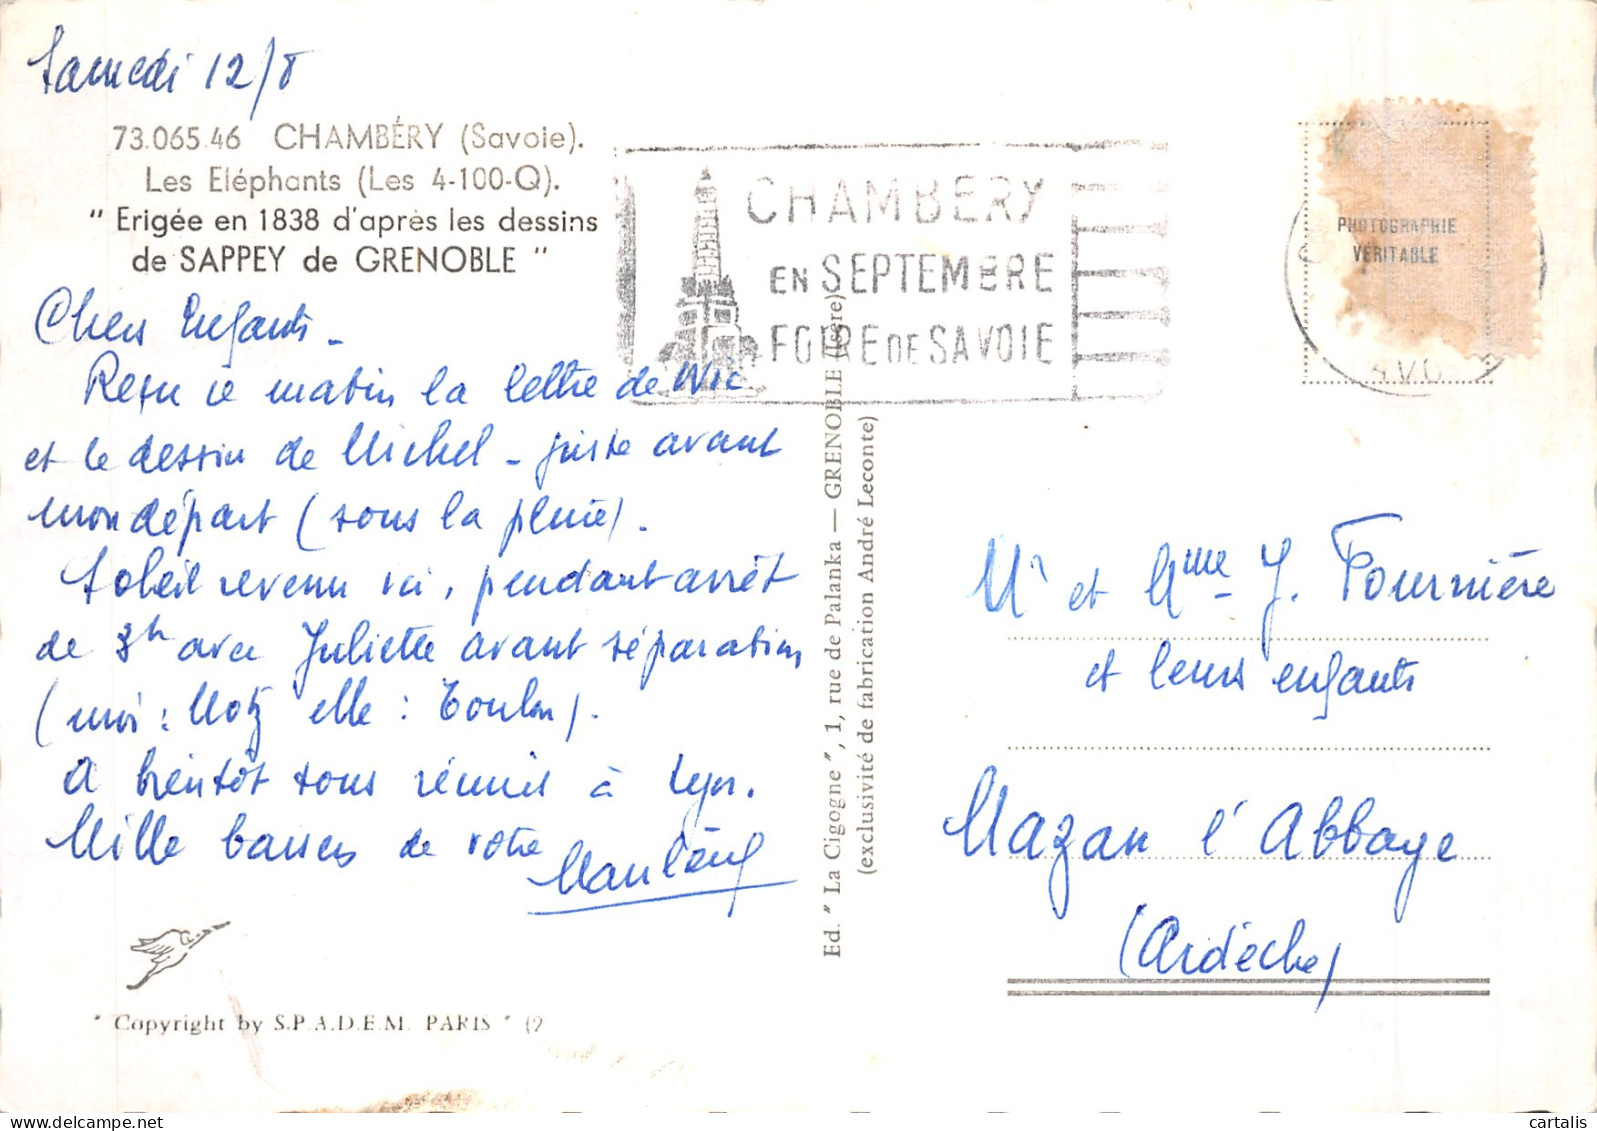 Samedi 12/8
73.065.46 CHAMBÉRY (Savoie).
Les Eléphants (Les 4-100-Q).
" Erigée en 1838 d'après les dessins
de SAPPEY de GRENOBLE "
Chers Enfants -
Reçu ce matin la lettre de Nic
et le dessin de Michel - juste avant
mon départ (sous la pluie).
Soleil revenu ici, pendant arrêt
de 3h avec Juliette avant séparation
(moi : Motz elle : Toulon).
A bientôt tous réunis à Lyon.
Mille baisers de votre
" Copyright by S.P.A.D.E.M. PARIS "
CHAMBERY
EN SEPTEMBRE
FOIRE DE SAVOIE
PHOTOGRAPHIE
VÉRITABLE
Ed. "La Cigogne", 1, rue de Palanka — GRENOBLE (Isère)
(exclusivité de fabrication André Leconte)
Mr et Mme J. Fournière
et leurs enfants
Mazan l'Abbaye
(Ardèche)
cartalis
delcampe.net